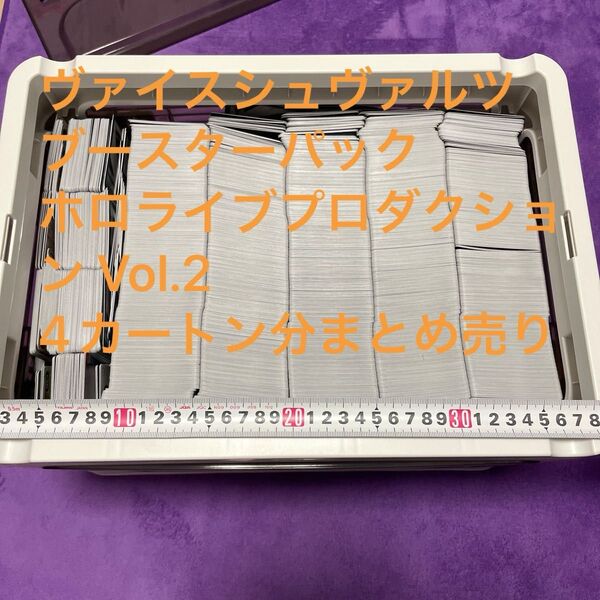 ヴァイスシュヴァルツ
ブースターパック
ホロライブプロダクショ
ン Vol.2
4カートン分まとめ売り
3 4 5 6 7 8 9 10 1 2 3 4 5 6 7 8 9 20 1 2 3 4 5 6 7 8 9 30 1 2 3 4 5 6 7 8